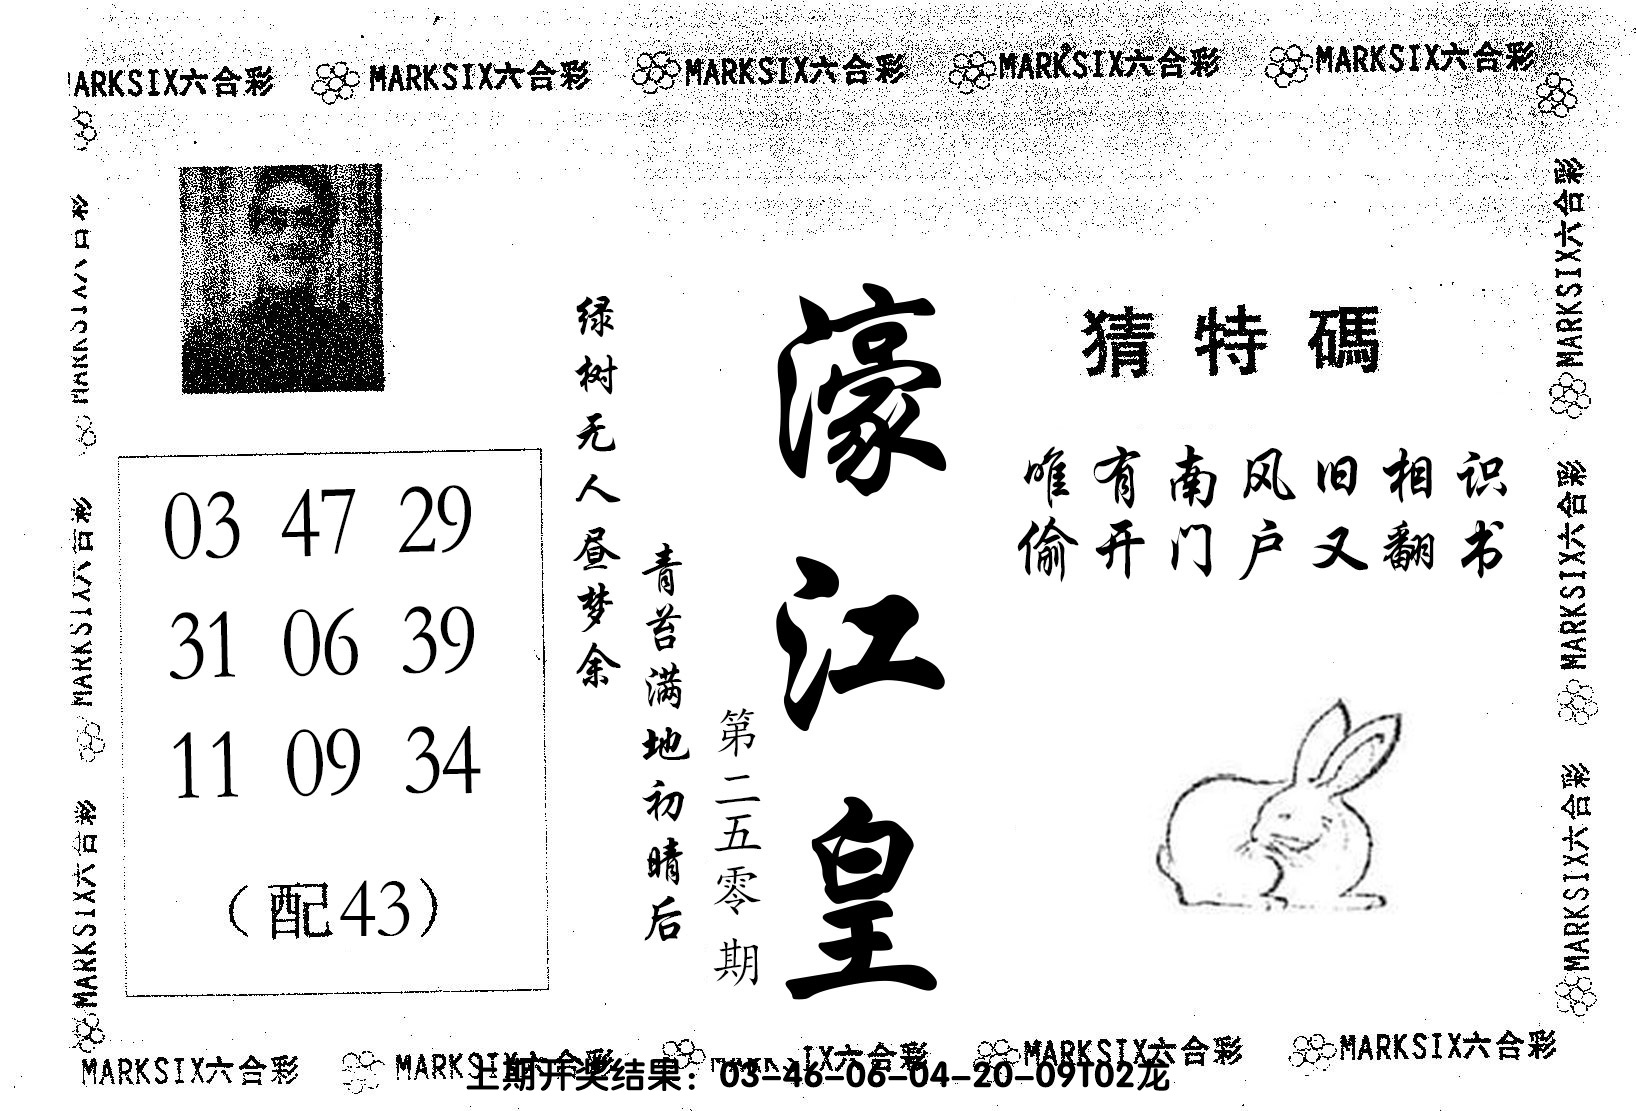 MARKSIX六合彩 MARKSIX六合彩 MARKSIX六合彩 MARKSIX六合彩
ARKSIX六合彩
濠江皇
第二五零期
猜特碼
唯有南风旧相识
偷开门户又翻书
青苔满地初晴后
绿树无人昼梦余
03 47 29
31 06 39
11 09 34
（配43）
MARKSIX六合彩
MARKSIX六合彩
MARKSIX六合彩
MARKSIX六合彩
MARKSIX六合彩
MARKSIX六合彩
MARKSIX六合彩 MARKSIX六合彩 IX六合彩 MARKSIX六合彩 MARKSIX六合彩
上期开奖结果：03-46-06-04-20-09T02龙